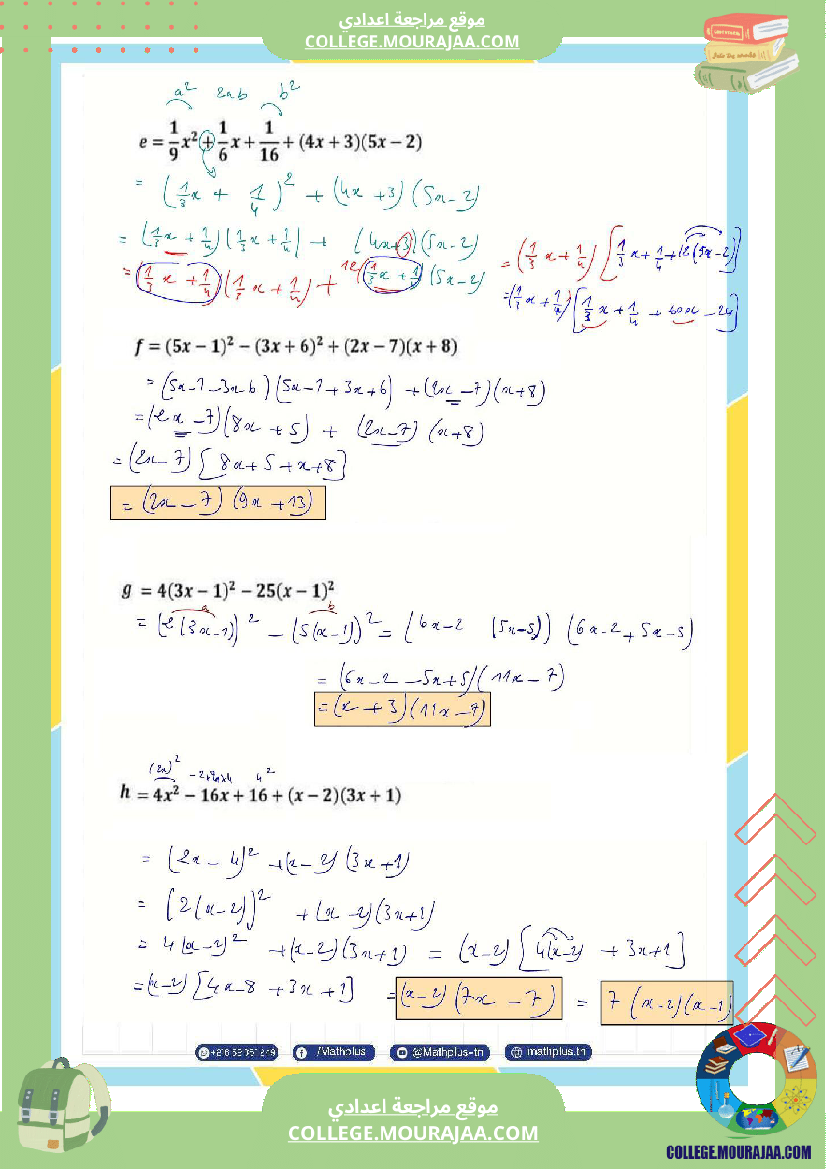 موقع مراجعة اعدادي
COLLEGE.MOURAJAA.COM
a² 2ab b²
e = 1/9 x² + 1/6 x + 1/16 + (4x + 3)(5x − 2)
= (1/3 x + 1/4)² + (4x + 3)(5x − 2)
= (1/3 x + 1/4)(1/3 x + 1/4) + (4x + 3)(5x − 2)
= (1/3 x + 1/4)(1/3 x + 1/4) + 12(1/3 x + 1/4)(5x − 2)
= (1/3 x + 1/4)[1/3 x + 1/4 + 12(5x − 2)]
= (1/3 x + 1/4)[1/3 x + 1/4 + 60x − 24]
f = (5x − 1)² − (3x + 6)² + (2x − 7)(x + 8)
= (5x − 1 − 3x − 6)(5x − 1 + 3x + 6) + (2x − 7)(x + 8)
= (2x − 7)(8x + 5) + (2x − 7)(x + 8)
= (2x − 7)[8x + 5 + x + 8]
= (2x − 7)(9x + 13)
g = 4(3x − 1)² − 25(x − 1)²
a b
= (2(3x − 1))² − (5(x − 1))² = (6x − 2 (5x − 5))(6x − 2 + 5x − 5)
= (6x − 2 − 5x + 5)(11x − 7)
= (x + 3)(11x − 7)
(2x)² 4²
h = 4x² − 16x + 16 + (x − 2)(3x + 1)
= (2x − 4)² + (x − 2)(3x + 1)
= (2(x − 2))² + (x − 2)(3x + 1)
= 4(x − 2)² + (x − 2)(3x + 1) = (x − 2)[4(x − 2) + 3x + 1]
= (x − 2)[4x − 8 + 3x + 1] = (x − 2)(7x − 7) = 7(x − 2)(x − 1)
/Mathplus @Mathplus-tn mathplus.tn
موقع مراجعة اعدادي
COLLEGE.MOURAJAA.COM
COLLEGE.MOURAJAA.COM